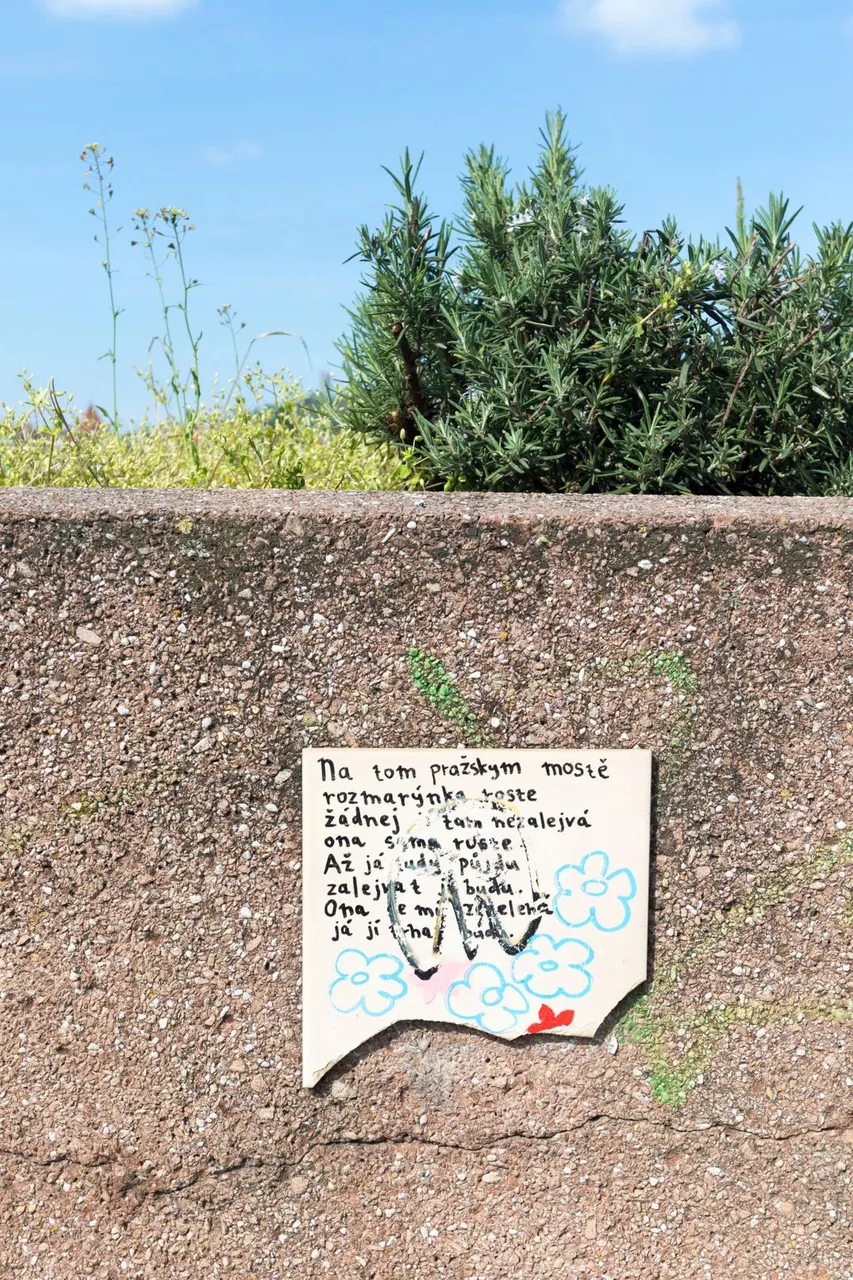 Na tom pražskym mostě
rozmarýnka roste
žádnej tam nezalejvá
ona sama roste.
Až já pudu
zalejvat ji budu.
Ona se mi zazelená
já jí budu.